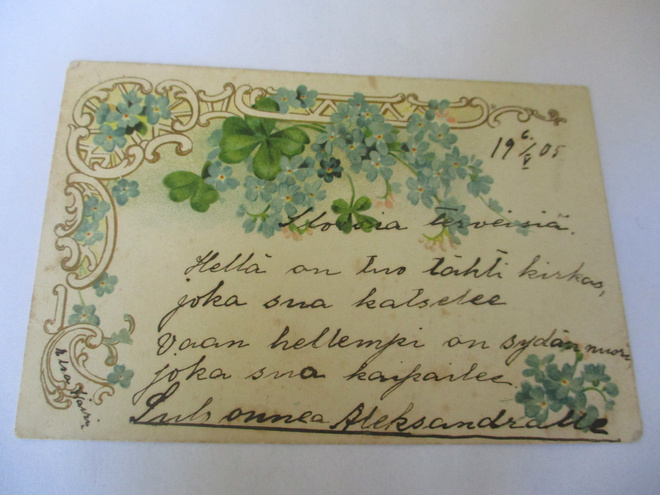 19 6/V 05
Iloisia terveisiä.
Hellä on tuo tähti kirkas,
joka sua katselee
vaan hellempi on sydän nuori,
joka sua kaipailee.
onnea Aleksandralle
Elsa